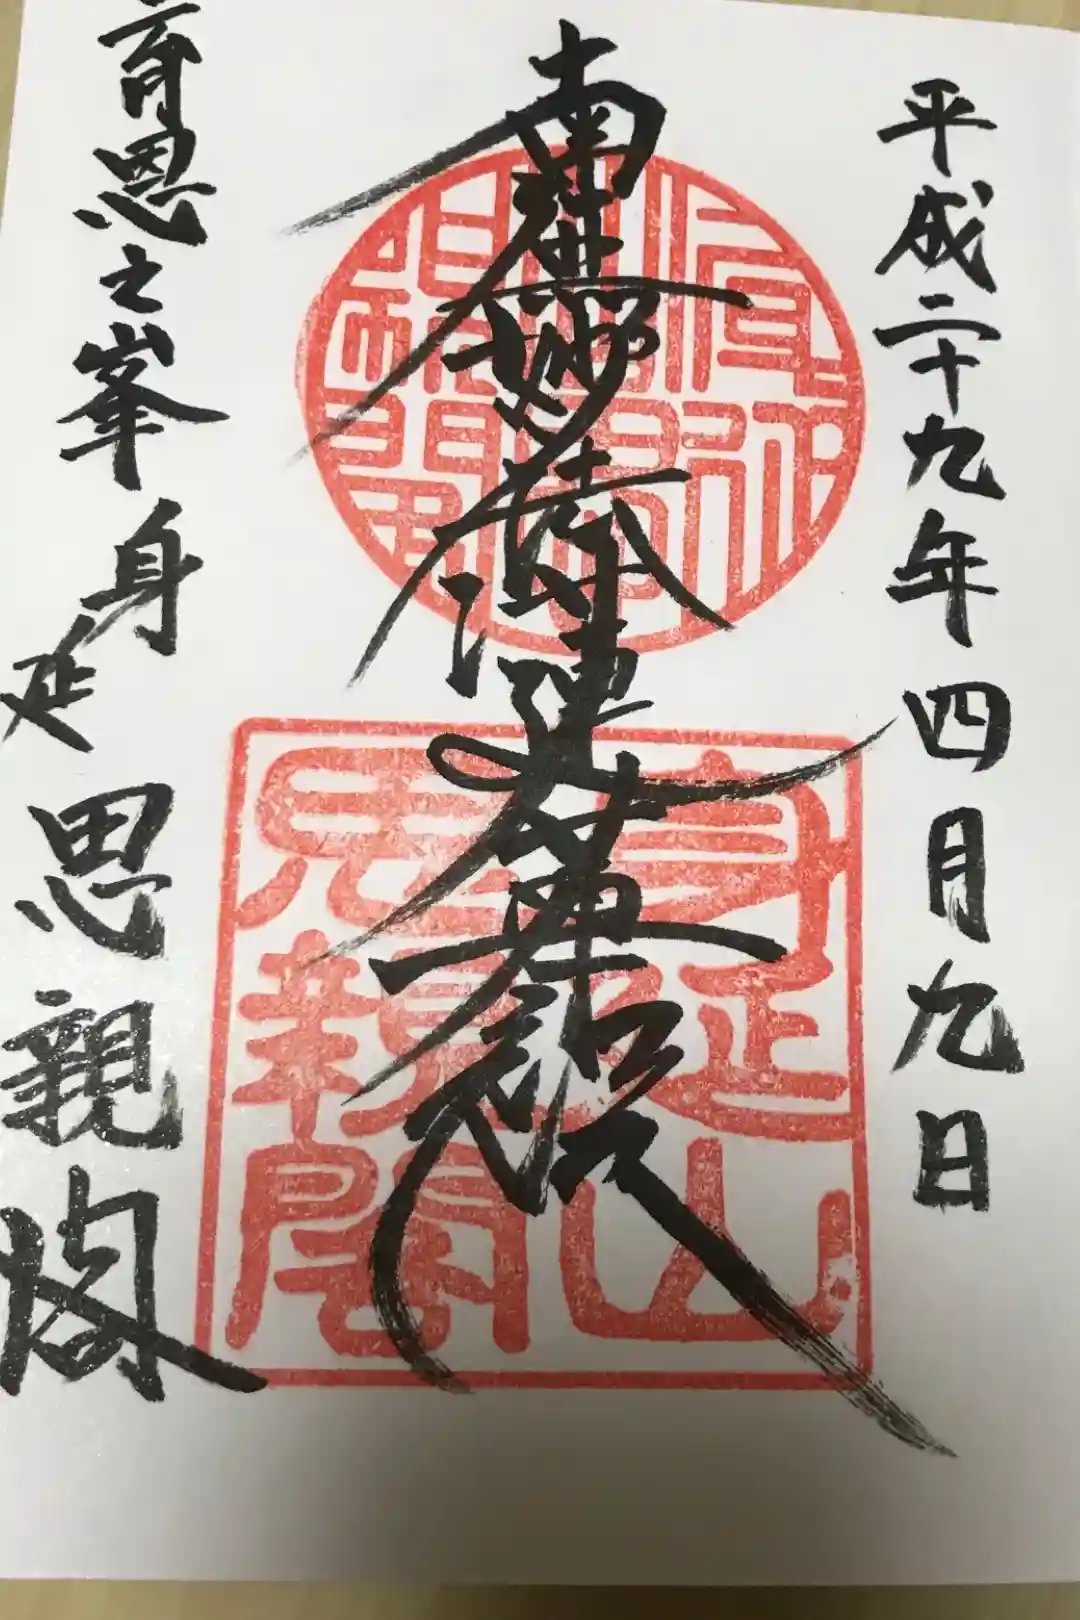 平成二十九年四月九日
南無妙法蓮華経
育恩之峯 身延 思親閣
身延山
思親閣